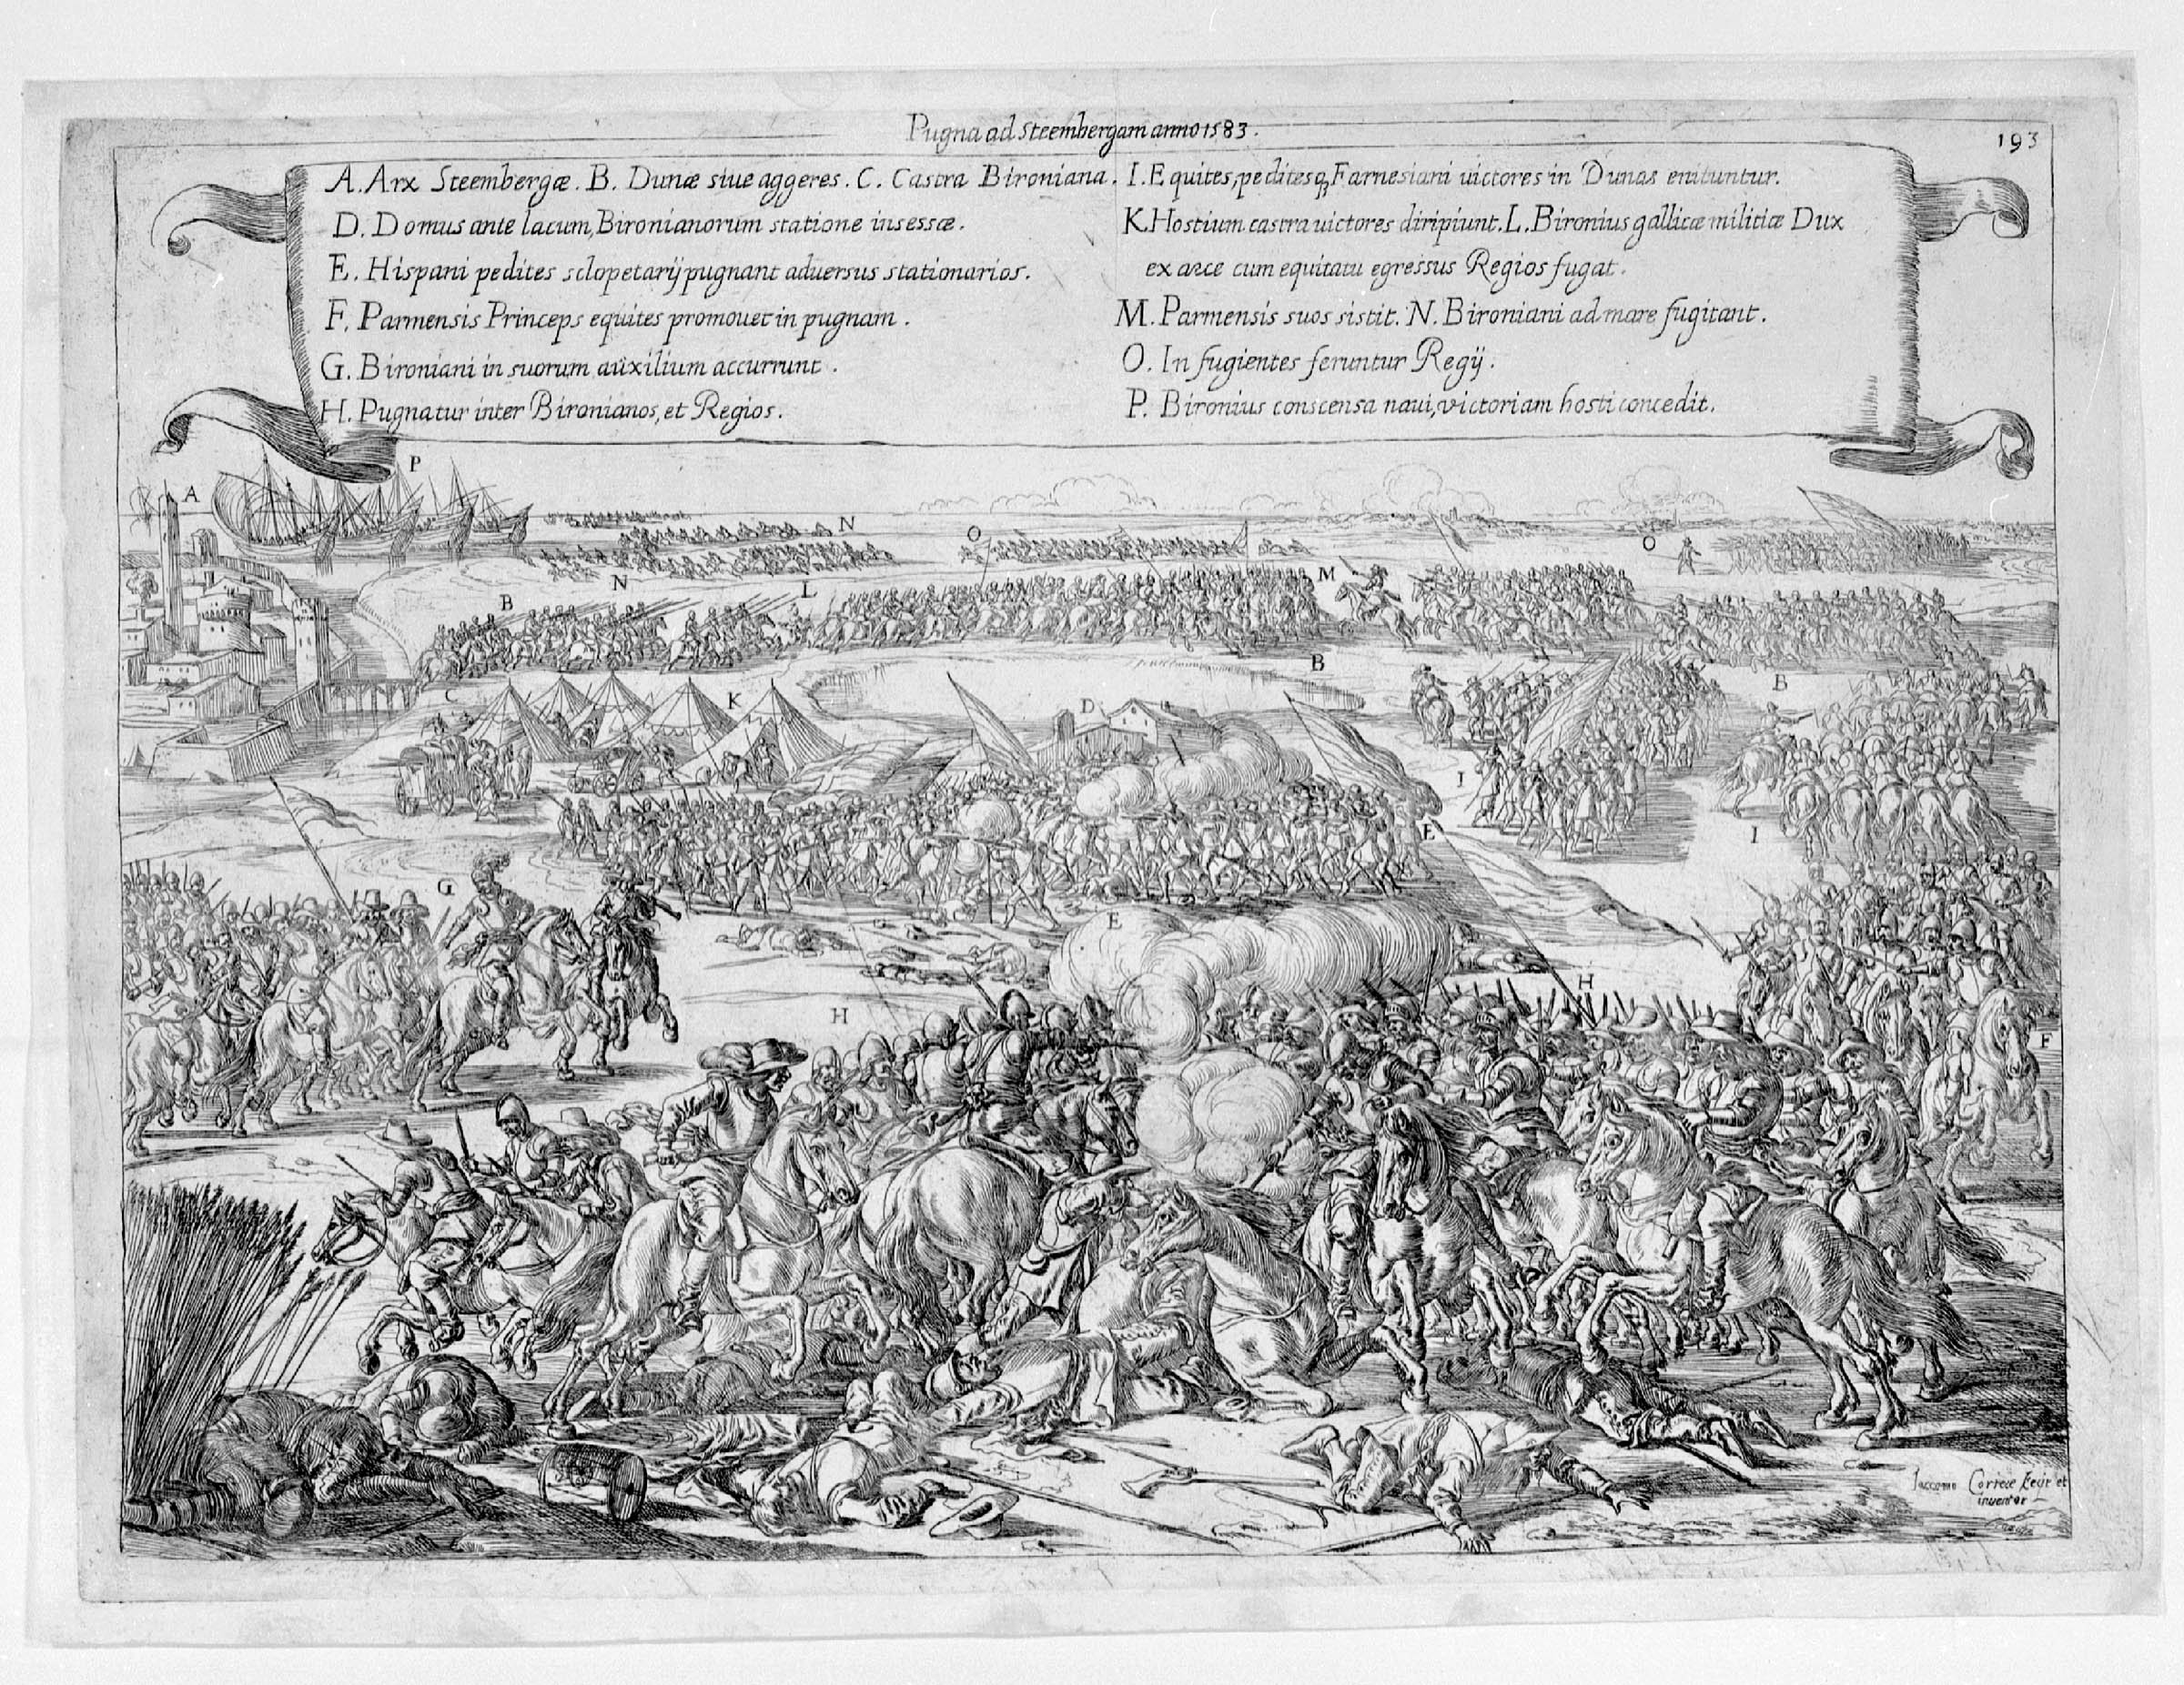 Pugna ad Steembergam anno 1583.
193
A. Arx Steembergæ. B. Dunæ siue aggeres. C. Castra Bironiana.
D. Domus ante lacum, Bironianorum statione insessæ.
E. Hispani pedites sclopetarij pugnant aduersus stationarios.
F. Parmensis Princeps equites promouet in pugnam.
G. Bironiani in suorum auxilium accurrunt.
H. Pugnatur inter Bironianos, et Regios.
I. Equites, peditesq; Farnesiani uictores in Dunas enituntur.
K. Hostium castra uictores diripiunt. L. Bironius gallicæ militiæ Dux
ex arce cum equitatu egressus Regios fugat.
M. Parmensis suos sistit. N. Bironiani ad mare fugitant.
O. In fugientes feruntur Regij.
P. Bironius conscensa naui, victoriam hosti concedit.
P
A
N
O
O
N
B
L
M
B
C
K
D
B
I
E
I
G
E
H
H
F
inventor